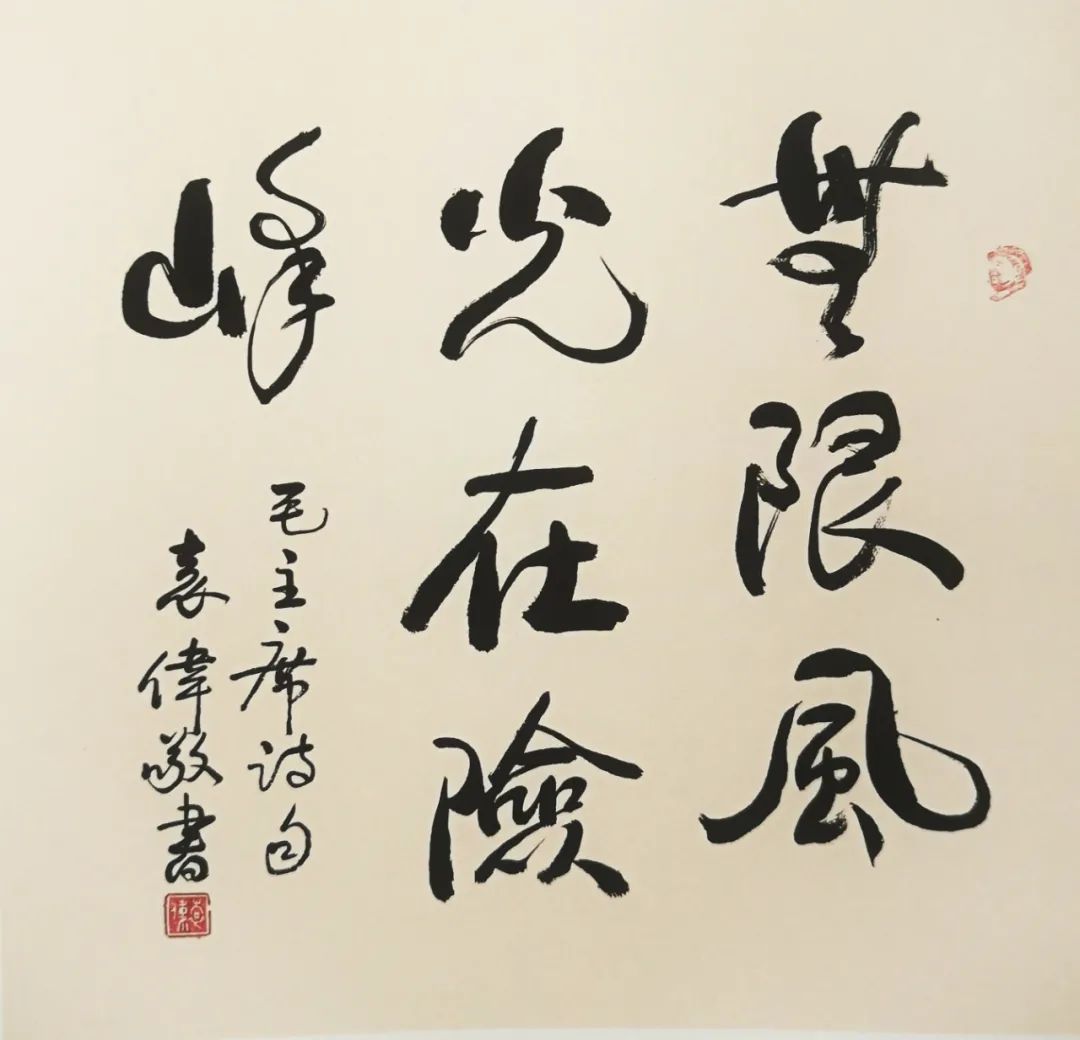 無限風
光在險
峰
毛主席诗句
袁偉敬書